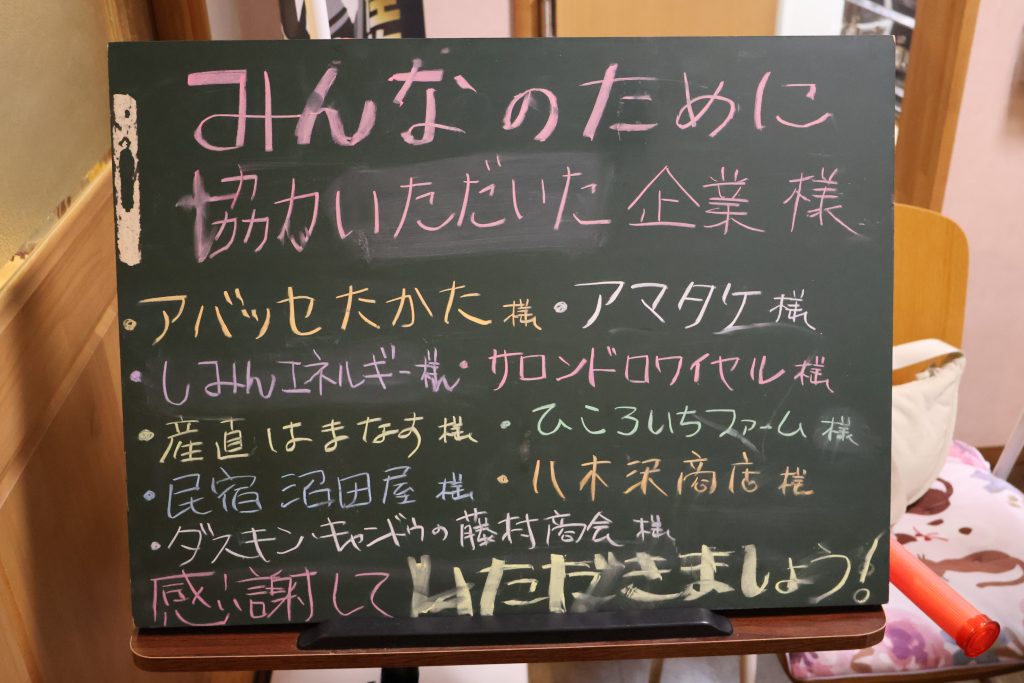 みんなのために
協力いただいた企業様
・アバッセたかた様 ・アマタケ様
・しみんエネルギー様 ・サロンドロワイヤル様
・産直はまなす様 ・ひころいちファーム様
・民宿沼田屋様 ・八木沢商店様
・ダスキン・キャンドゥの藤村商会様
感謝していただきましょう!